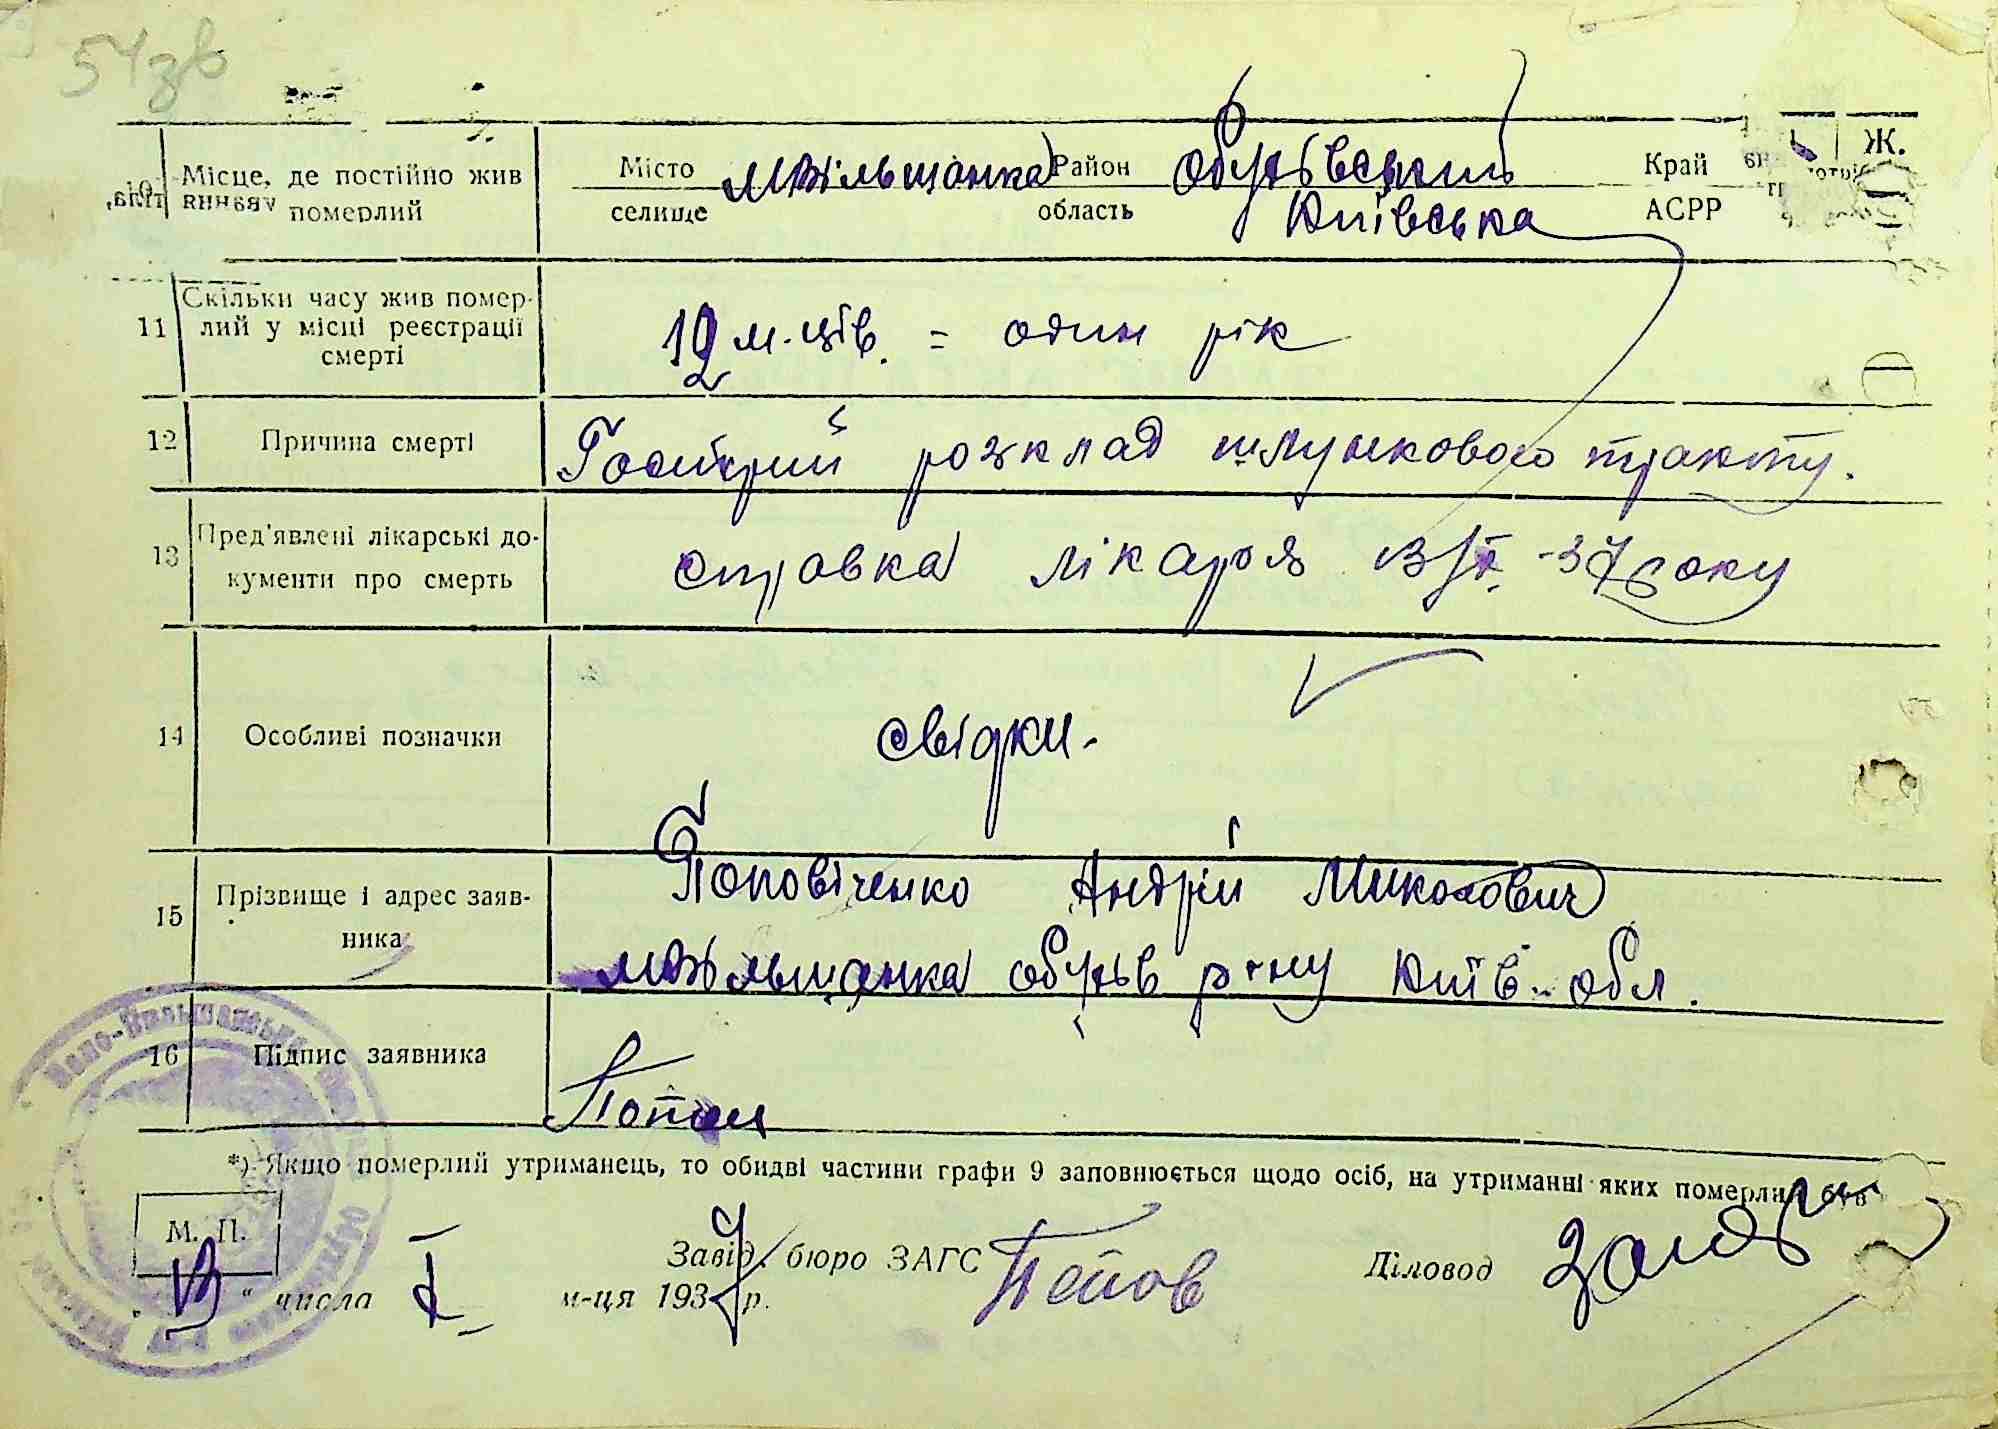 54зв
Ж.
Місце, де постійно жив померлий
Місто селище
мвільшанка
Район область
обухівський
Київська
Край АСРР
11
Скільки часу жив помер-
лий у місці реєстрації
смерті
12 м-ців. = один рік
12
Причина смерті
Гострий розклад шлункового тракту.
13
Пред'явлені лікарські до-
кументи про смерть
справка лікаря 13/X -37 року
14
Особливі позначки
свідки.
15
Прізвище і адрес заяв-
ника
Поповіченко Андрій Миколович
мвільшанка обухів р-ну Київ. обл.
16
Підпис заявника
*) Якщо померлий утриманець, то обидві частини графи 9 заповнюється щодо осіб, на утриманні яких померлий був
М. П.
Завід. бюро ЗАГС
Діловод
„13“ числа X м-ця 1937 р.